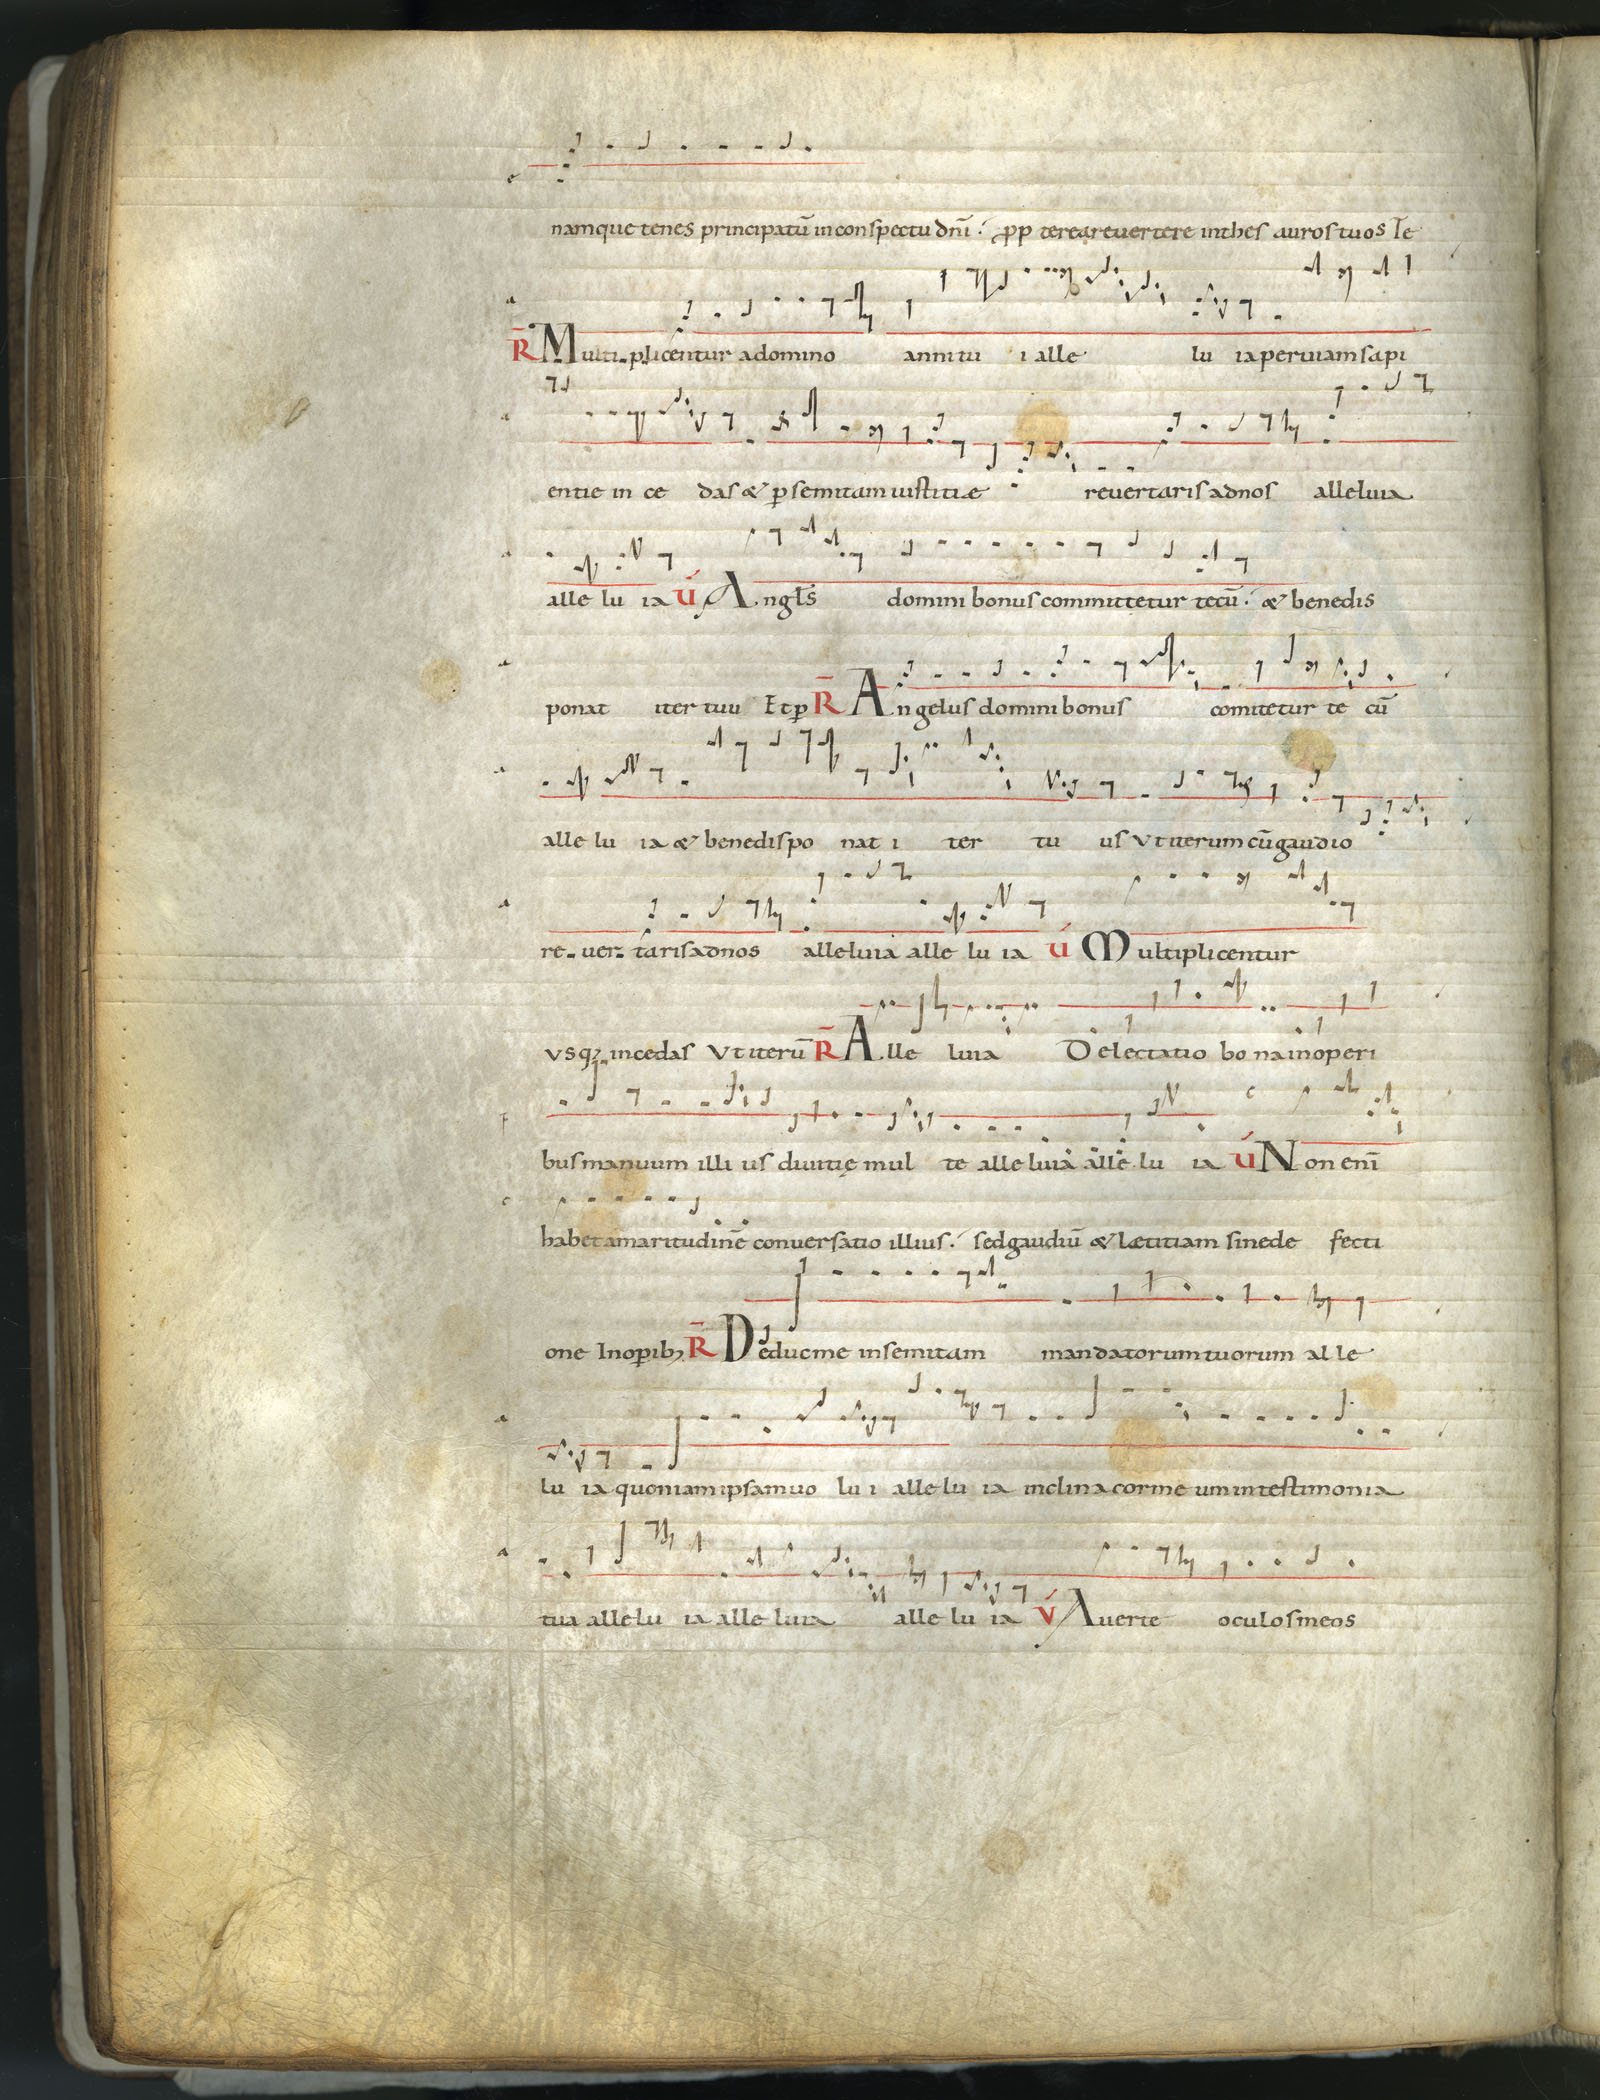 namque tenes principatū in conspectu dñi. ꝓpterea revertere in thesauros tuos Te
R̄ Multiplicentur a domino anni tui alle lu ia per viam sapi
entie in ce das & ꝑ semitam iustitiæ revertaris ad nos alleluia
alle lu ia V́ Angl̄s domini bonus committetur tecū. & benedis
ponat iter tuu Et ꝑ R̄ Angelus domini bonus comitetur te cū
alle lu ia & bene dispo nat i ter tu us Vt iterum cū gaudio
re ver taris ad nos alleluia alle lu ia V́ Multiplicentur
vsqꝫ incedas Vt iterū R̄ Alle luia Delectatio bona in operi
bus manuum illi us divitię mul te alleluia alle lu ia V́ Non enī
habet amaritudinē conversatio illius. sed gaudiū & lætitiam sine de fecti
one In oꝑibꝫ R̄ Deduc me in semitam mandatorum tuorum al le
lu ia quoniam ipsam vo lu i alle lu ia inclina cor me um in testimonia
tua alle lu ia alle luia alle lu ia V́ Averte oculos meos